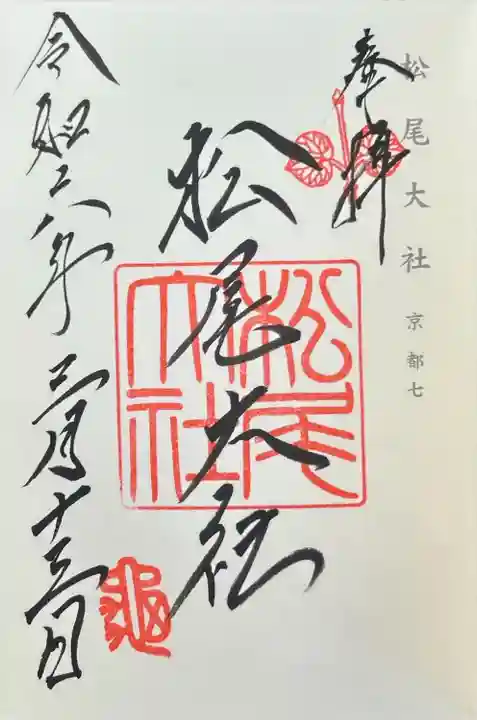 松尾大社 京都七
奉拝
松尾大社
松尾大社
令和六年 月十三日